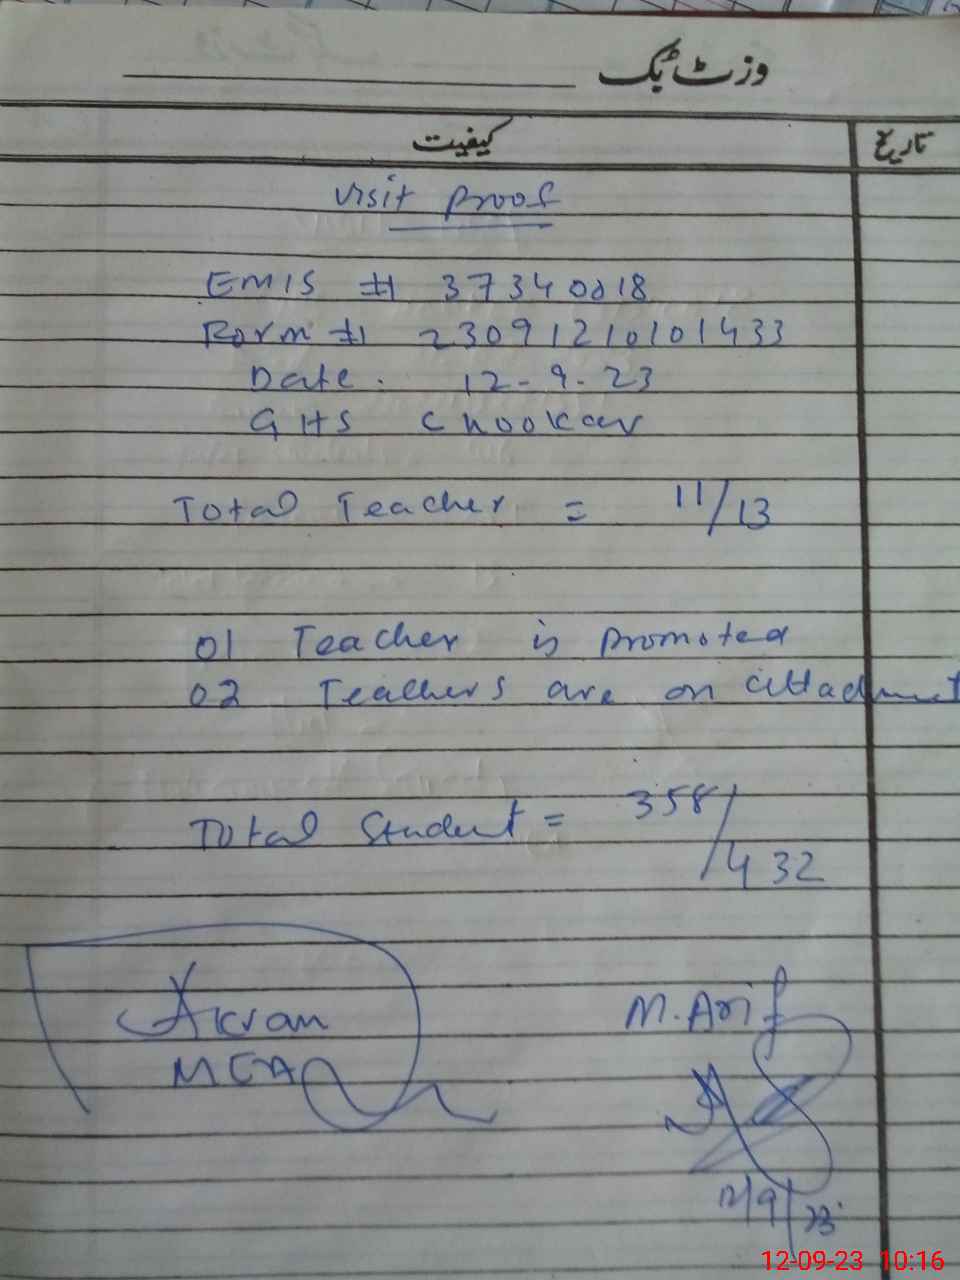 وزٹ بک
کیفیت
تاریخ
Visit Proof
EMIS # 37340018
Form # 23091210101433
Date. 12-9-23
GHS Chookar
Total Teacher = 11/13
01 Teacher is promoted
02 Teachers are on attachment
Total Student = 358/
432
Akram
MEA
M. Arif
12/9/23
12-09-23 10:16